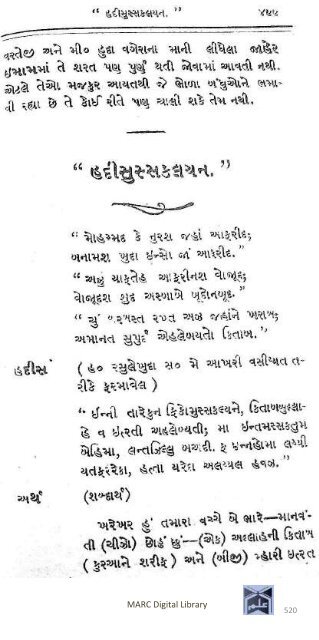 “ હદીસુસ્સકલયન. ” ૪૫૫
વસ્તેજી અને મી૦ હુદા વગેરાના માની લીધેલા જાહેર
ઇમામમાં તે શરત પણ પુર્ણ થતી જોવામાં આવતી નથી.
એટલે તેઓ મજકુર આયતથી જે ભોળા બંધુઓને ભમા-
વી રહ્યા છે તે કોઈ રીતે પણ ચાલી શકે તેમ નથી.
“ હદીસુસ્સકલયન. ”
“ મોહમ્મદ કે નુરશ જહાં આફરીદ;
બનામશ ખુદા ઇન્સો જાં આફરીદ. ”
“ અઝુ યાફતેહ આફરીનશ વોજુદ;
વોજુદશ શુદ અસ્બાબે બૂદોનબૂદ. ”
“ ચું બરબસ્ત રખ્ત અઝ જહાંને ખરાબ;
અમાનત સુપુર્દ એહલેબયતો કિતાબ. ”
હદીસ ( હ૦ રસુલેખુદા સ૦ મે આખરી વસીય્યત ત-
રીકે ફરમાવેલ )
“ ઇન્ની તારેકુન ફિકોમુસ્સકલયને, કિતાબલ્લાહે
હે વ ઇતરતી અહલેબયતી; મા ઇન્તમસ્સકતુમ
બેહિમા, લનતઝિલ્લુ બઅદી. ફ ઇન્નહોમા લય્યી
યતફર્રેકા, હત્તા યરેદા અલય્યલ હવઝ. ”
અર્થ (શબ્દાર્થ)
ખરેખર હું તમારા વચ્ચે બે ભારે—માનવં-
તી (ચીજો) છોડું છું—(એક) અલ્લાહની કિતાબ
( કુરઆને શરીફ ) અને (બીજી) મ્હારી ઇતરત
MARC Digital Library
520